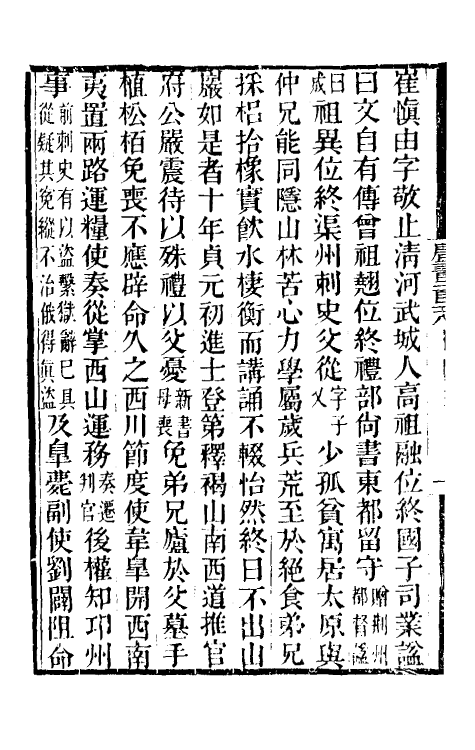 崔慎由字敬止淸河武城人高祖融位終國子司業諡
曰文自有傳曾祖翹位終禮部尚書東都留守贈荆州都督諡
曰成祖異位終渠州刺史父從字子乂少孤貧寓居太原與
仲兄能同隱山林苦心力學屬歲兵荒至於絕食弟兄
採梠拾橡實飮水棲衡而講誦不輟怡然終日不出山
巖如是者十年貞元初進士登第釋褐山南西道推官
府公嚴震待以殊禮以父憂新書母喪免弟兄廬於父墓手
植松栢免喪不應辟命久之西川節度使韋臯開西南
夷置兩路運糧使奏從掌西山運務奏遷判官後權知邛州
事前刺史有以盜繫獄辭已具從疑其寃縱不治俄得眞盜及臯薨副使劉闢阻命